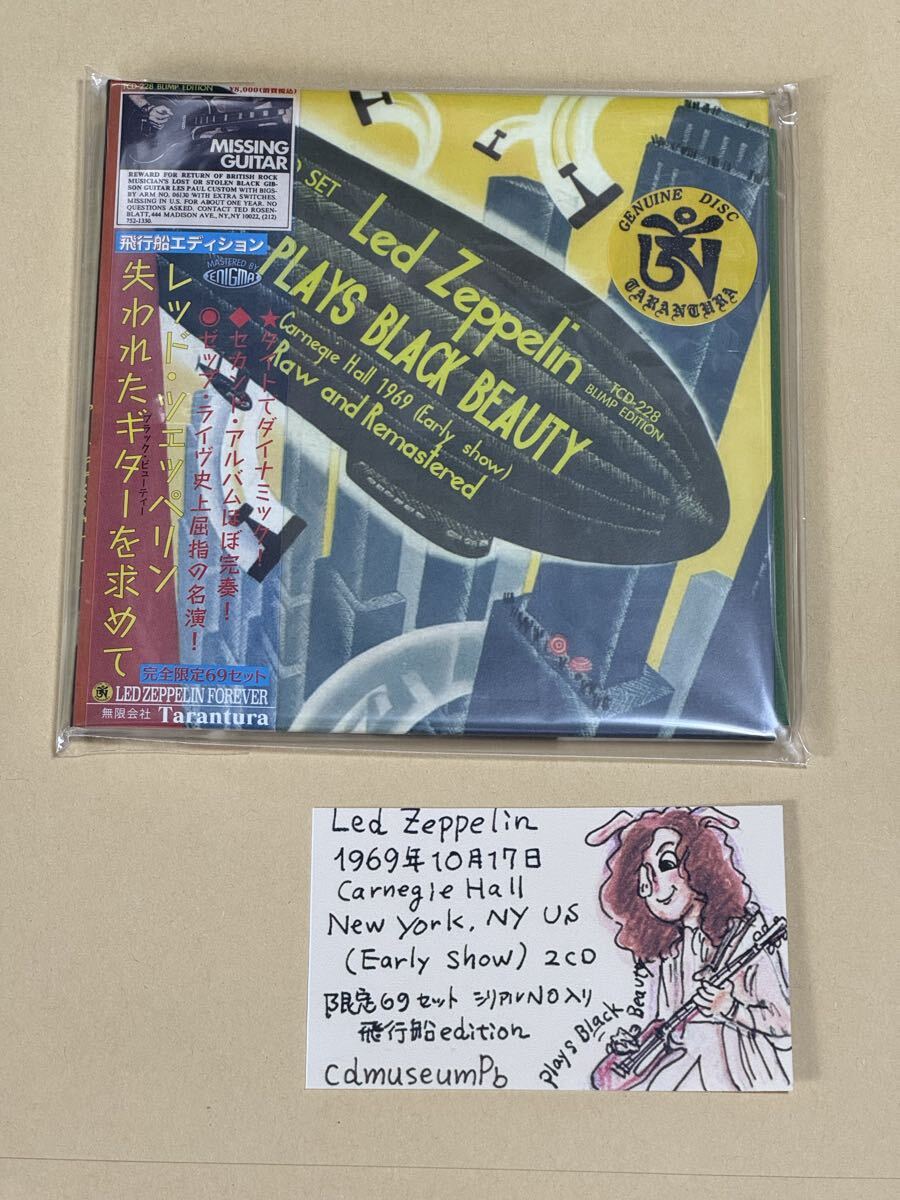 TCD-228 BLIMP EDITION ¥8,000(消費税込)
MISSING
GUITAR
REWARD FOR RETURN OF BRITISH ROCK
MUSICIAN'S LOST OR STOLEN BLACK GIB-
SON GUITAR LES PAUL CUSTOM WITH BIGS-
BY ARM NO. 06130 WITH EXTRA SWITCHES.
MISSING IN U.S. FOR ABOUT ONE YEAR. NO
QUESTIONS ASKED. CONTACT TED ROSEN-
BLATT, 444 MADISON AVE., NY, NY 10022, (212)
752-1330.
飛行船エディション
MASTERED BY
ENIGMA
★タイトでダイナミック!
◆セカンド・アルバムほぼ完奏!
●ゼップ・ライヴ史上屈指の名演!
レッド・ツェッペリン
失われたギターを求めて
ブラック・ビューティー
完全限定69セット
LED ZEPPELIN FOREVER
無限会社 Tarantura
D SET
Led Zeppelin
PLAYS BLACK BEAUTY
Carnegie Hall 1969 (Early show)
Raw and Remastered
TCD-228
BLIMP EDITION
GENUINE DISC
TARANTURA
Led Zeppelin
1969年10月17日
Carnegie Hall
New York, NY US
(Early Show) 2CD
限定69セット シリアルNO入り
飛行船edition
cdmuseumPb
plays Black
Beauty